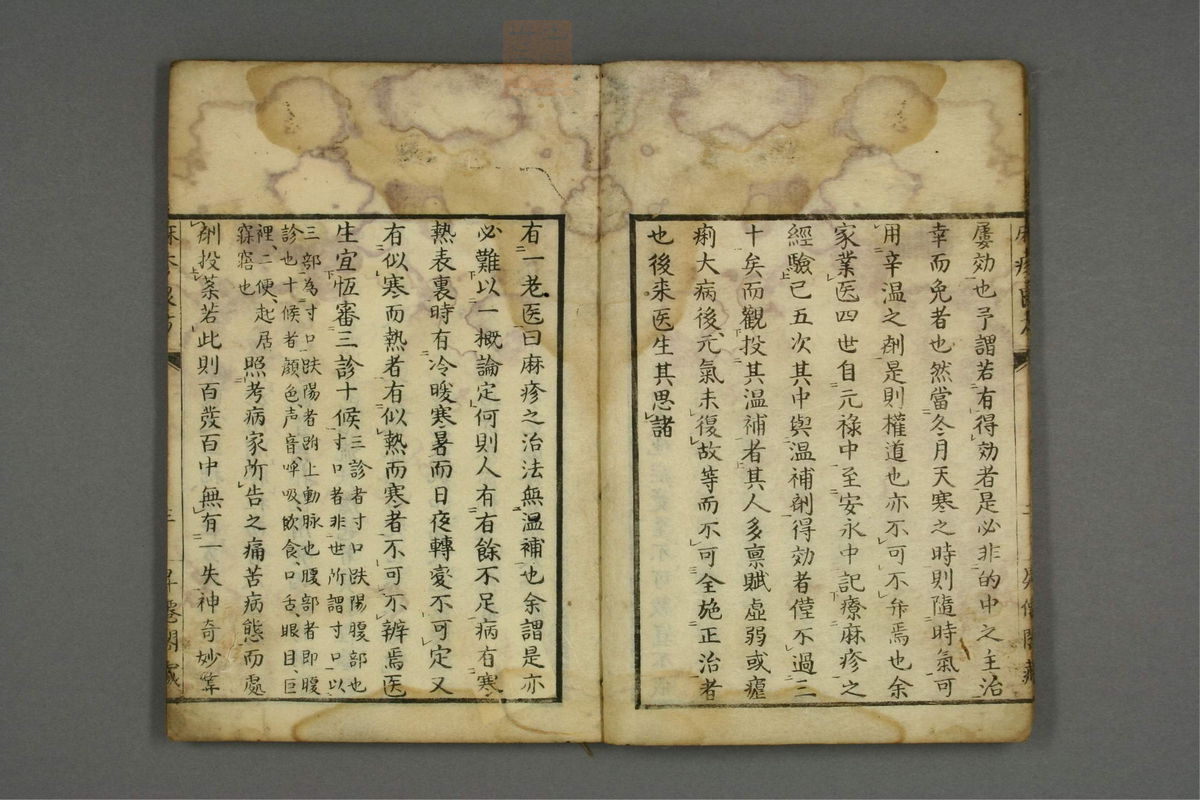 屢効也予謂若有得効者是必非的中之主治
幸而免者也然當冬月天寒之時則隨時氣可
用辛温之劑是則權道也亦不可不弁焉也余
家業医四世自元禄中至安永中記療麻疹之
經驗已五次其中與温補劑得効者僅不過二三
十矣而觀投其温補者其人多禀賦虚弱或瘧
痢大病後元氣未復故等而不可全施正治者
也後来医生其思諸
有一老医曰麻疹之治法無温補也余謂是亦
必難以一概論定何則人有有餘不足病有寒
熱表裏時有冷暖寒暑而日夜轉變不可定又
有似寒而熱者有似熱而寒者不可不辨焉医
生宜恆審三診十候三診者寸口趺陽腹部也
寸口者非世所謂寸口以
三部為寸口趺陽者跗上動脉也腹部者即腹
診也十候者顔色声音呼吸飲食口舌眼目巨
裡二便起居
寐寤也
照考病家所告之痛苦病態而處
劑投薬若此則百發百中無有一失神奇妙筭